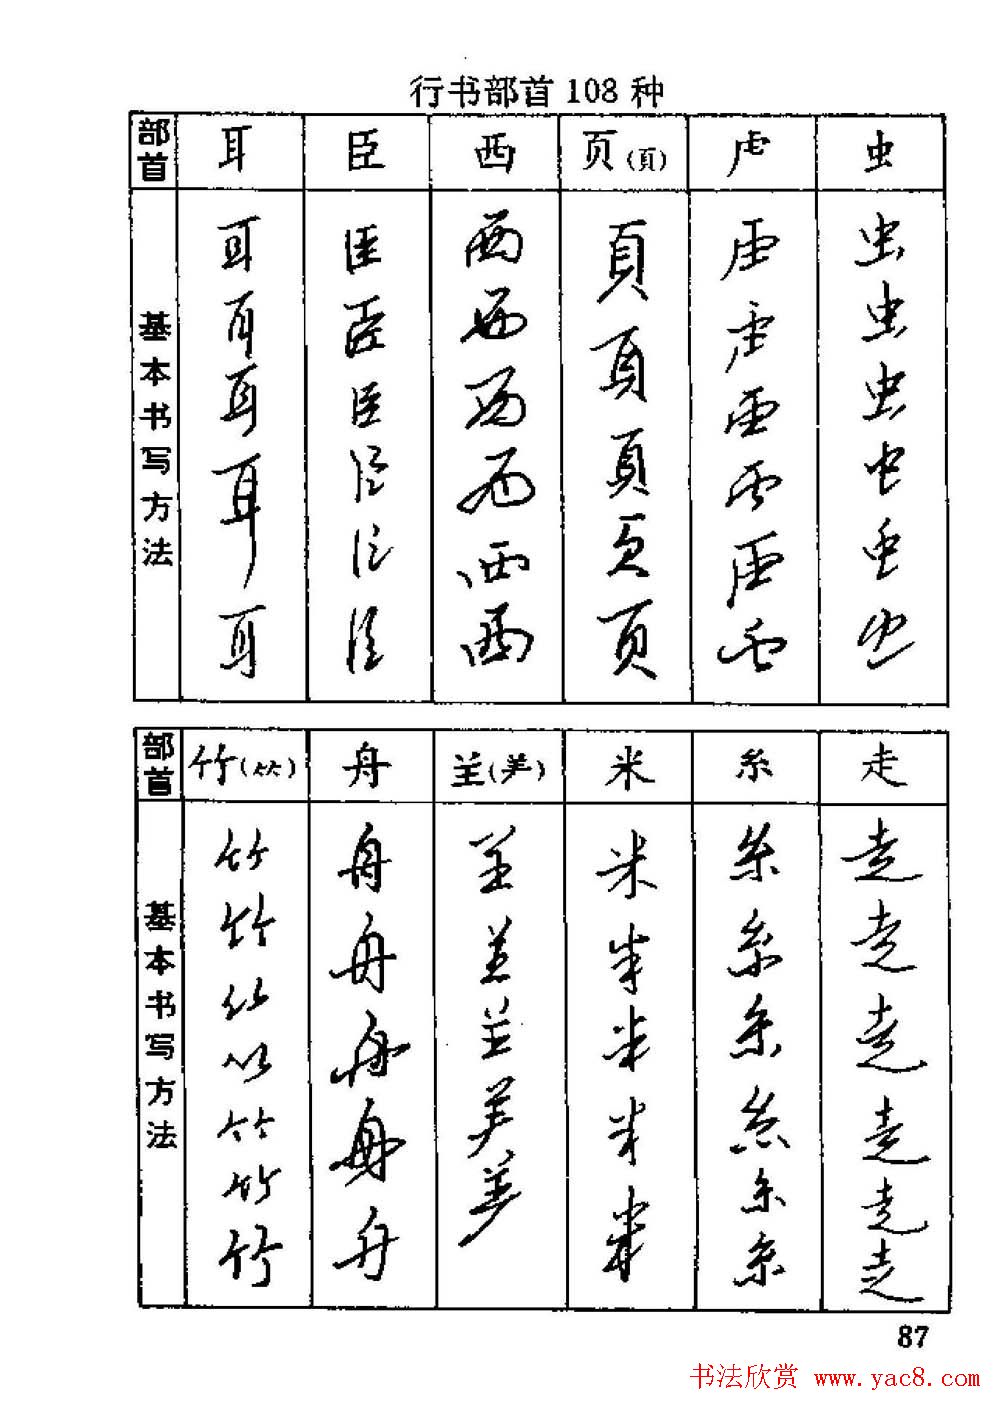 行书部首108种
部首 耳 臣 西 页(頁) 虍 虫
基本书写方法
耳 臣 西 頁 虍 虫
耳 臣 西 頁 虍 虫
耳 臣 西 頁 虍 虫
耳 臣 西 页 虍 虫
耳 臣 西 页 虍 虫
臣 西 虍 虫
部首 竹(⺮) 舟 𦍌(⺶) 米 糸 走
基本书写方法
竹 舟 𦍌 米 糸 走
竹 舟 𦍌 米 糸 走
竹 舟 𦍌 米 糸 走
竹 舟 ⺶ 米 糸 走
竹 舟 ⺶ 米 糸 走
竹 糸 走
竹
87
书法欣赏 www.yac8.com